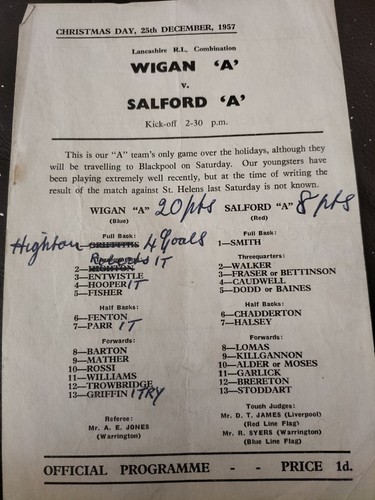 CHRISTMAS DAY, 25th DECEMBER, 1957
Lancashire R.L. Combination
WIGAN 'A'
v.
SALFORD 'A'
Kick-off 2-30 p.m.
This is our "A" team's only game over the holidays, although they
will be travelling to Blackpool on Saturday. Our youngsters have
been playing extremely well recently, but at the time of writing the
result of the match against St. Helens last Saturday is not known.
WIGAN "A" 20pts
(Blue)
Full Back:
Highton GRIFFITHS 4 Goals
2—HIGHTON 1T
3—ENTWISTLE
4—HOOPER 1T
5—FISHER
Half Backs:
6—FENTON
7—PARR 1T
Forwards:
8—BARTON
9—MATHER
10—ROSSI
11—WILLIAMS
12—TROWBRIDGE
13—GRIFFIN 1TRY
Referee:
Mr. A. E. JONES
(Warrington)
SALFORD "A" 8pts
(Red)
Full Back:
1—SMITH
Threequarters:
2—WALKER
3—FRASER or BETTINSON
4—CAUDWELL
5—DODD or BAINES
Half Backs:
6—CHADDERTON
7—HALSEY
Forwards:
8—LOMAS
9—KILLGANNON
10—ALDER or MOSES
11—GARLICK
12—BRERETON
13—STODDART
Touch Judges:
Mr. D. T. JAMES (Liverpool)
(Red Line Flag)
Mr. R. SYERS (Warrington)
(Blue Line Flag)
OFFICIAL PROGRAMME - - PRICE 1d.